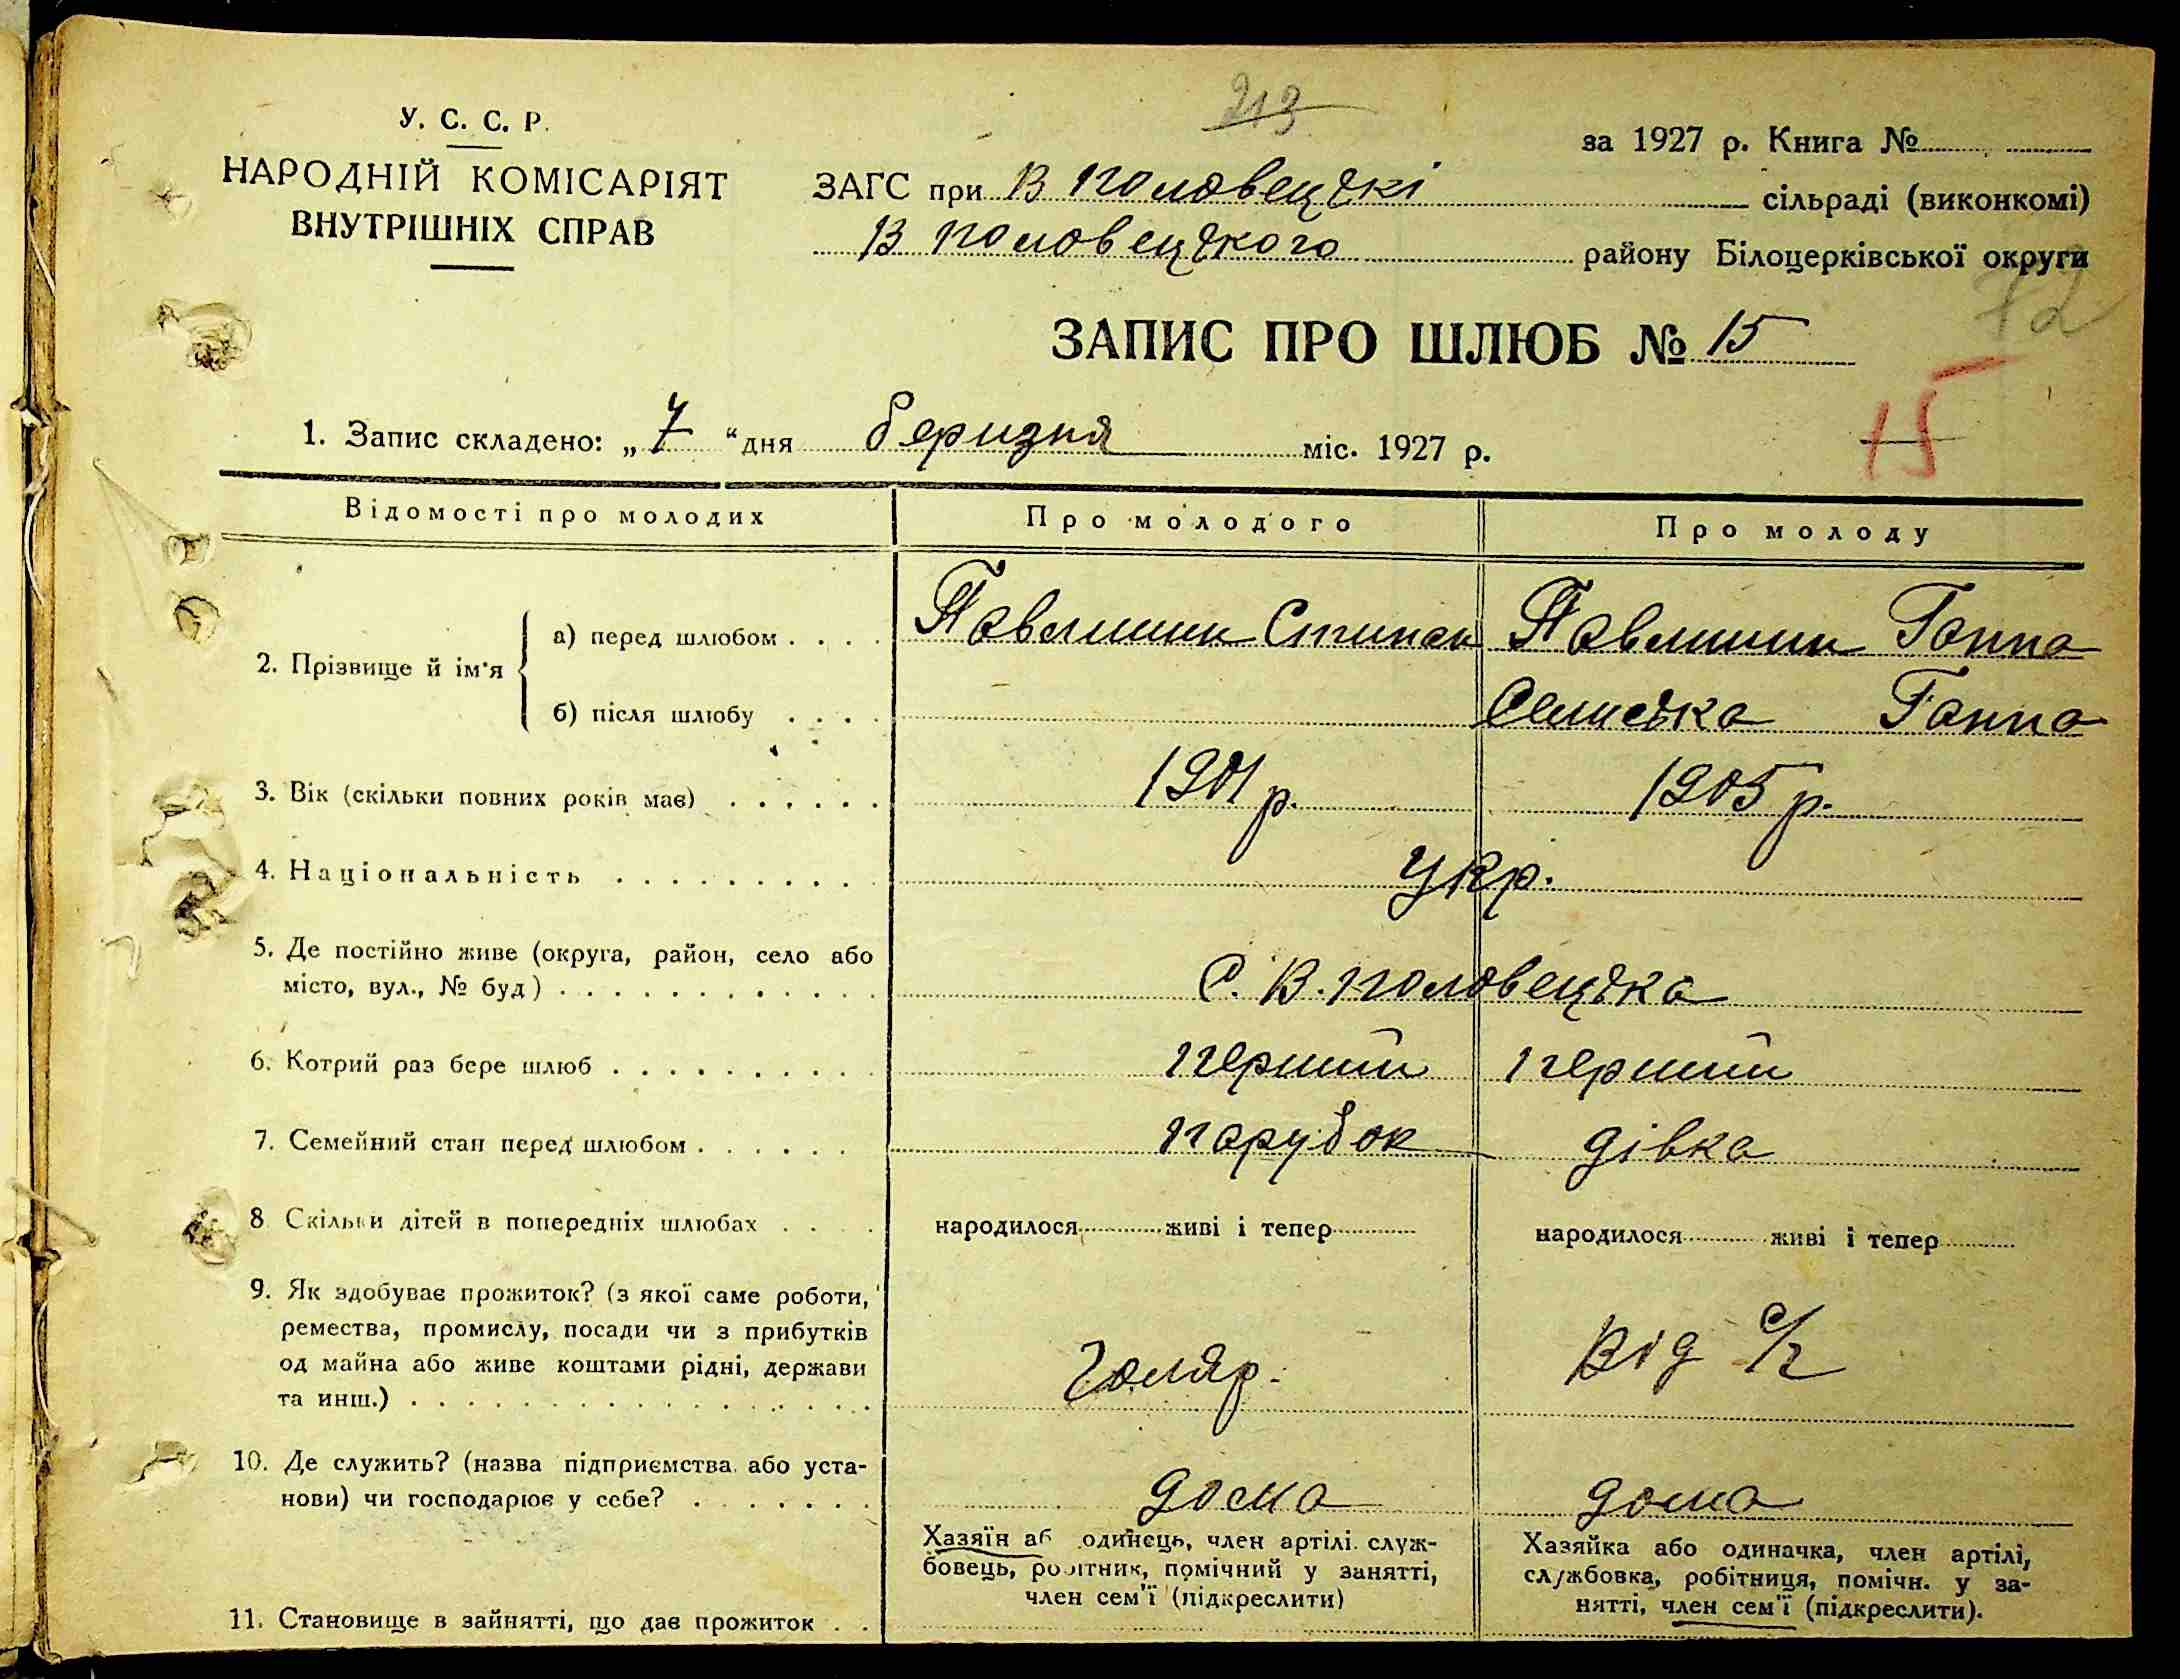 213
У. С. С. Р.
НАРОДНІЙ КОМІСАРІЯТ
ВНУТРІШНІХ СПРАВ
за 1927 р. Книга №
ЗАГС при В Половецькі сільраді (виконкомі)
В Половецького району Білоцерківської округи
72
ЗАПИС ПРО ШЛЮБ № 15
15
1. Запис складено: „7“ дня беризня міс. 1927 р.
Відомості про молодих
Про молодого
Про молоду
2. Прізвище й ім'я
а) перед шлюбом . . . .
Павлишин Стипан
Павлишин Ганна
б) після шлюбу . . . .
Ганна
3. Вік (скільки повних років має) . . . . . .
1901 р.
1905 р.
4. Національність . . . . . . . . .
Укр.
5. Де постійно живе (округа, район, село або
місто, вул., № буд) . . . . . . . . . . .
С. В. Половецька
6. Котрий раз бере шлюб . . . . . . . . . .
перший
перший
7. Семейний стан перед шлюбом . . . . . .
парубок
дівка
8. Скільки дітей в попередніх шлюбах . . . .
народилося живі і тепер
народилося живі і тепер
9. Як здобуває прожиток? (з якої саме роботи,
ремества, промислу, посади чи з прибутків
од майна або живе коштами рідні, держави
та инш.) . . . . . . . . . . . . . . . .
Голяр.
Від с/г
10. Де служить? (назва підприємства або уста-
нови) чи господарює у себе? . . . . . . .
дома
дома
Хазяїн або одинець, член артілі, служ-
бовець, робітник, помічний у занятті,
член сем'ї (підкреслити)
Хазяйка або одиначка, член артілі,
службовка, робітниця, помічн. у за-
нятті, член сем'ї (підкреслити).
11. Становище в зайнятті, що дає прожиток . .